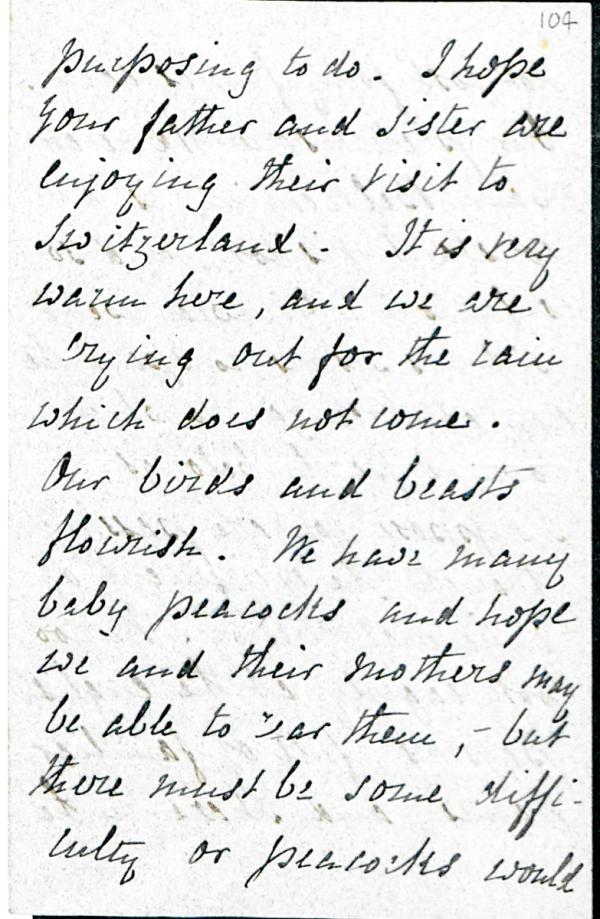 104
purposing to do. I hope
your father and sister are
enjoying their visit to
Switzerland. It is very
warm here, and we are
crying out for the rain
which does not come.
Our birds and beasts
flourish. We have many
baby peacocks and hope
we and their mothers may
be able to rear them, - but
there must be some diffi-
culty or peacocks would